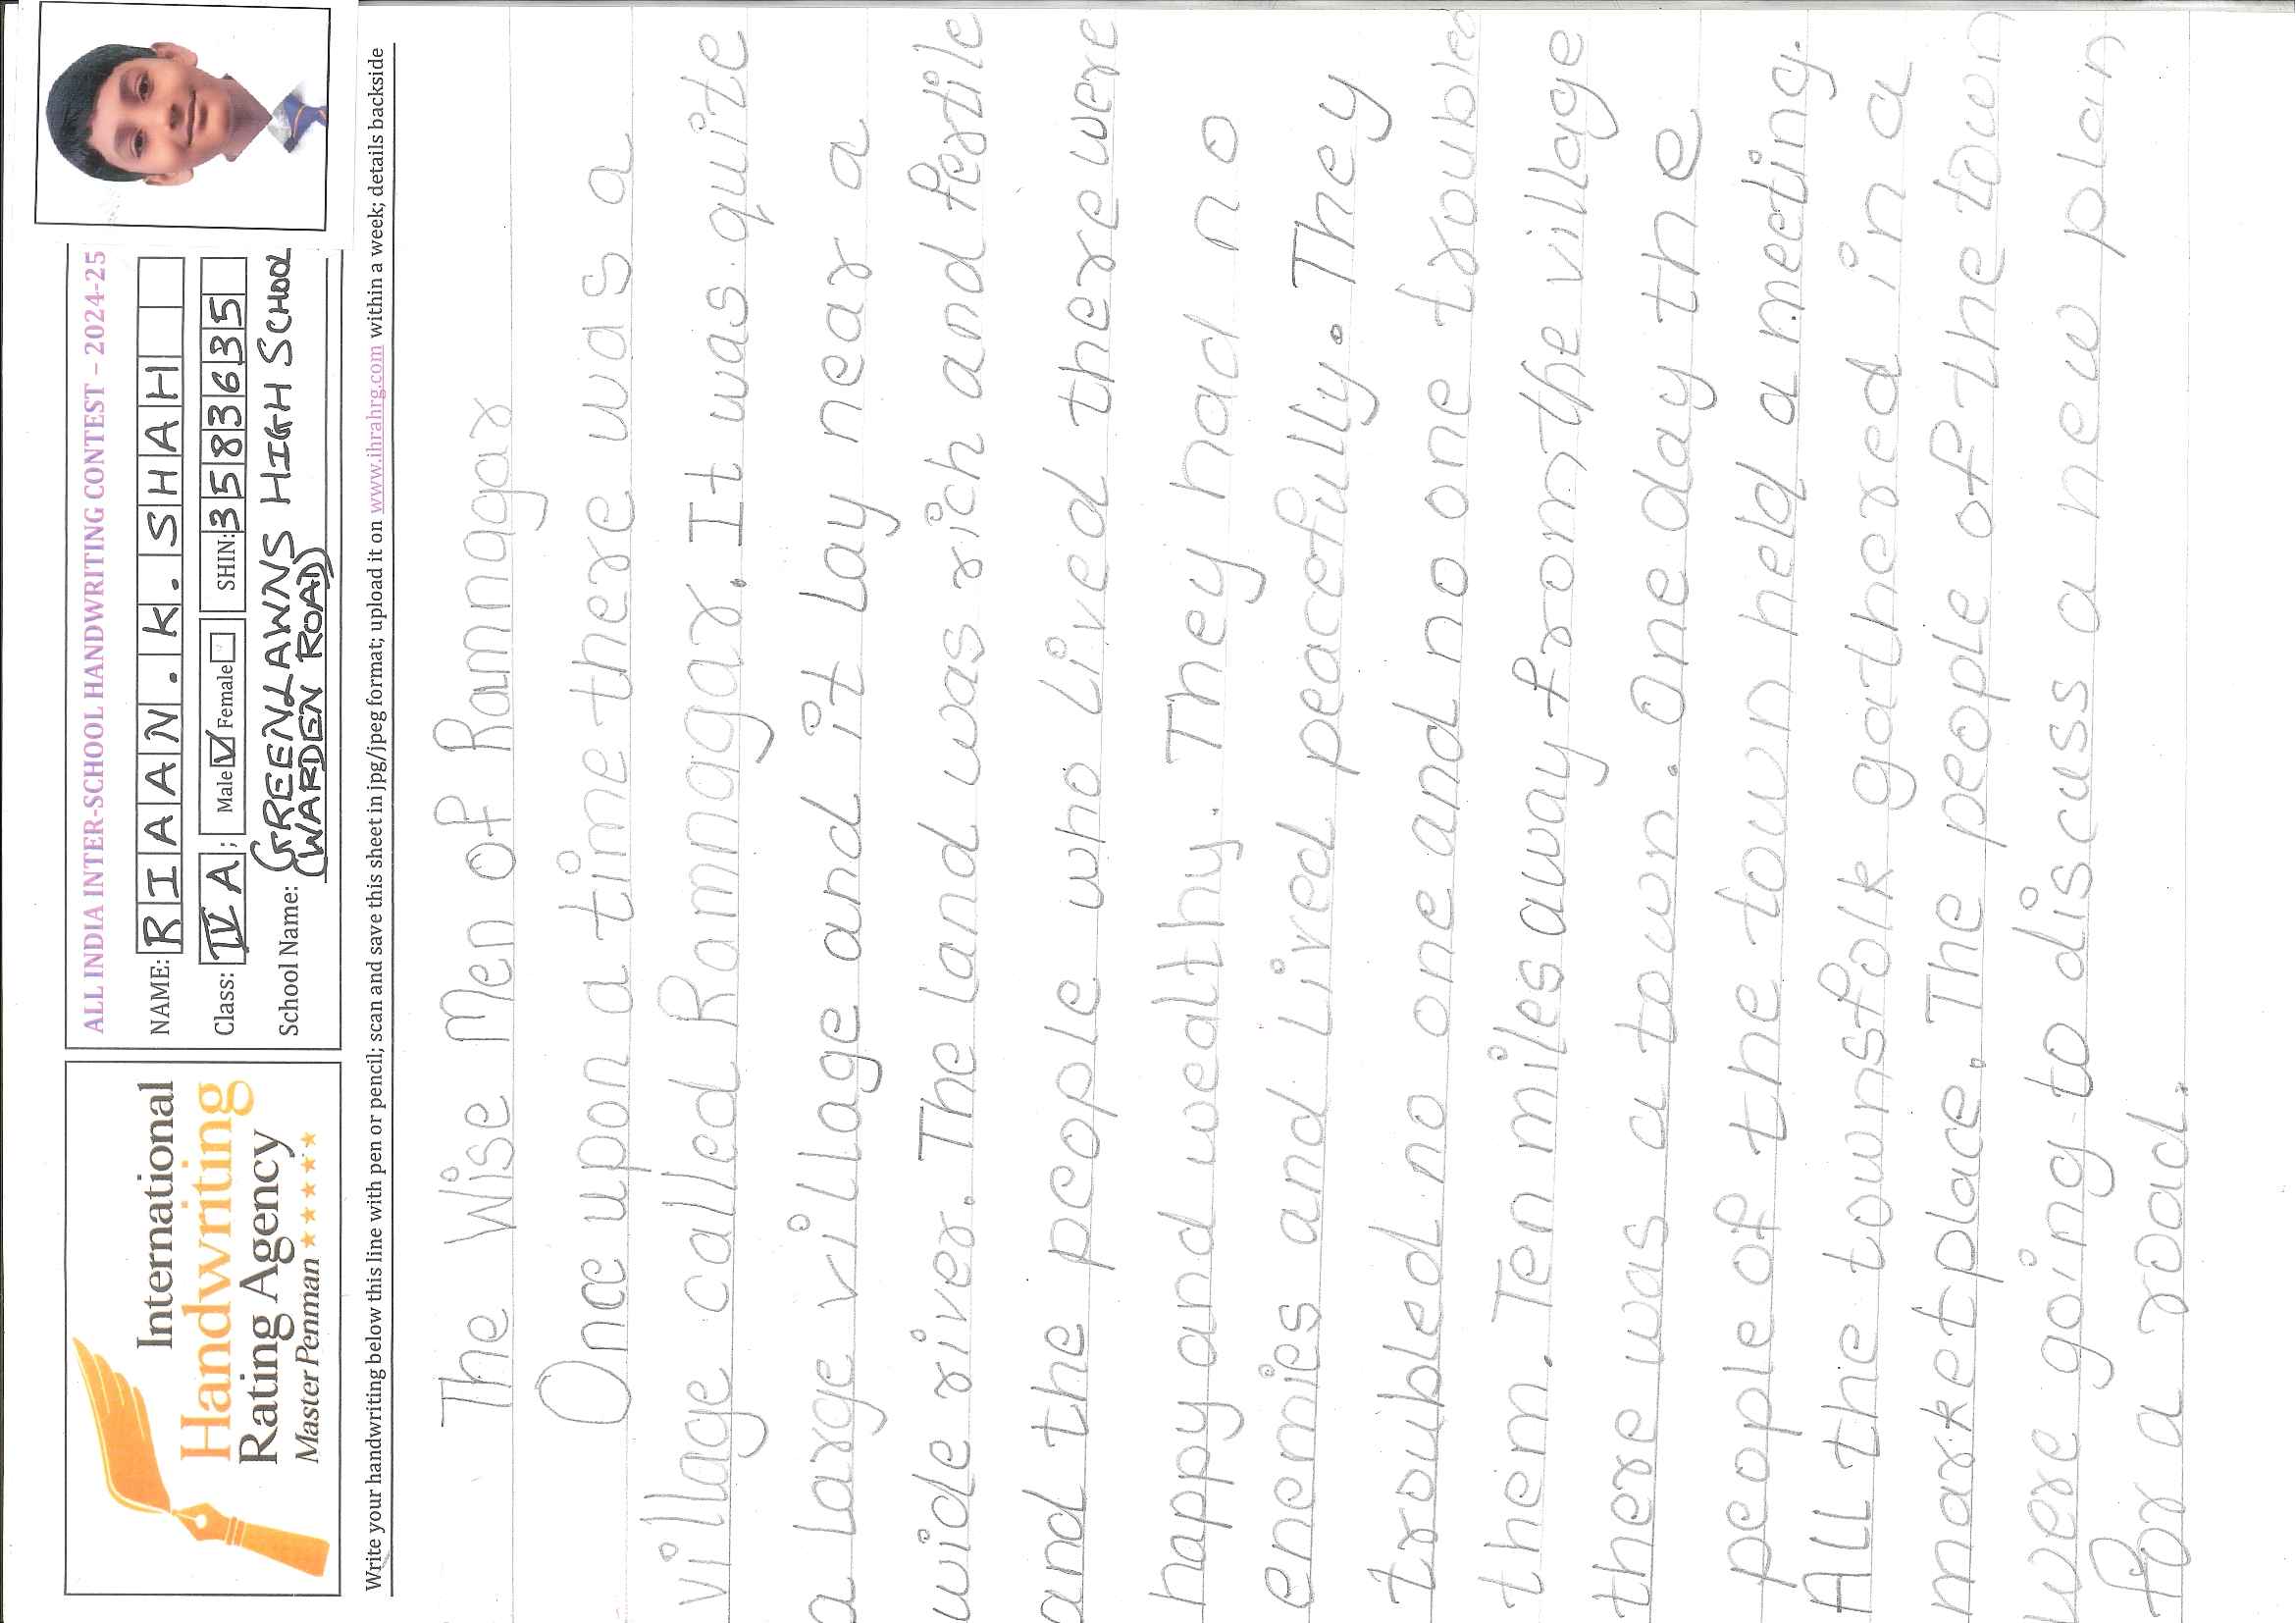 International
Handwriting
Rating Agency
Master Penman
ALL INDIA INTER-SCHOOL HANDWRITING CONTEST – 2024-25
NAME: RIAAN.K.SHAH
Class: IV A ; Male ✓ Female SHIN: 3 5 8 3 6 3 5
School Name: GREENLAWNS HIGH SCHOOL
(WARDEN ROAD)
Write your handwriting below this line with pen or pencil; scan and save this sheet in jpg/jpeg format; upload it on www.ihrahrg.com within a week; details backside
The Wise Men of Ramnagar
Once upon a time there was a
village called Ramnagar. It was quite
a large village and it lay near a
wide river. The land was rich and fertile
and the people who lived there were
happy and wealthy. They had no
enemies and lived peacefully. They
troubled no one and no one troubled
them. Ten miles away from the village
there was a town. One day the
people of the town held a meeting.
All the townsfolk gathered in a
marketplace. The people of the town
were going to discuss a new plan
for a road.